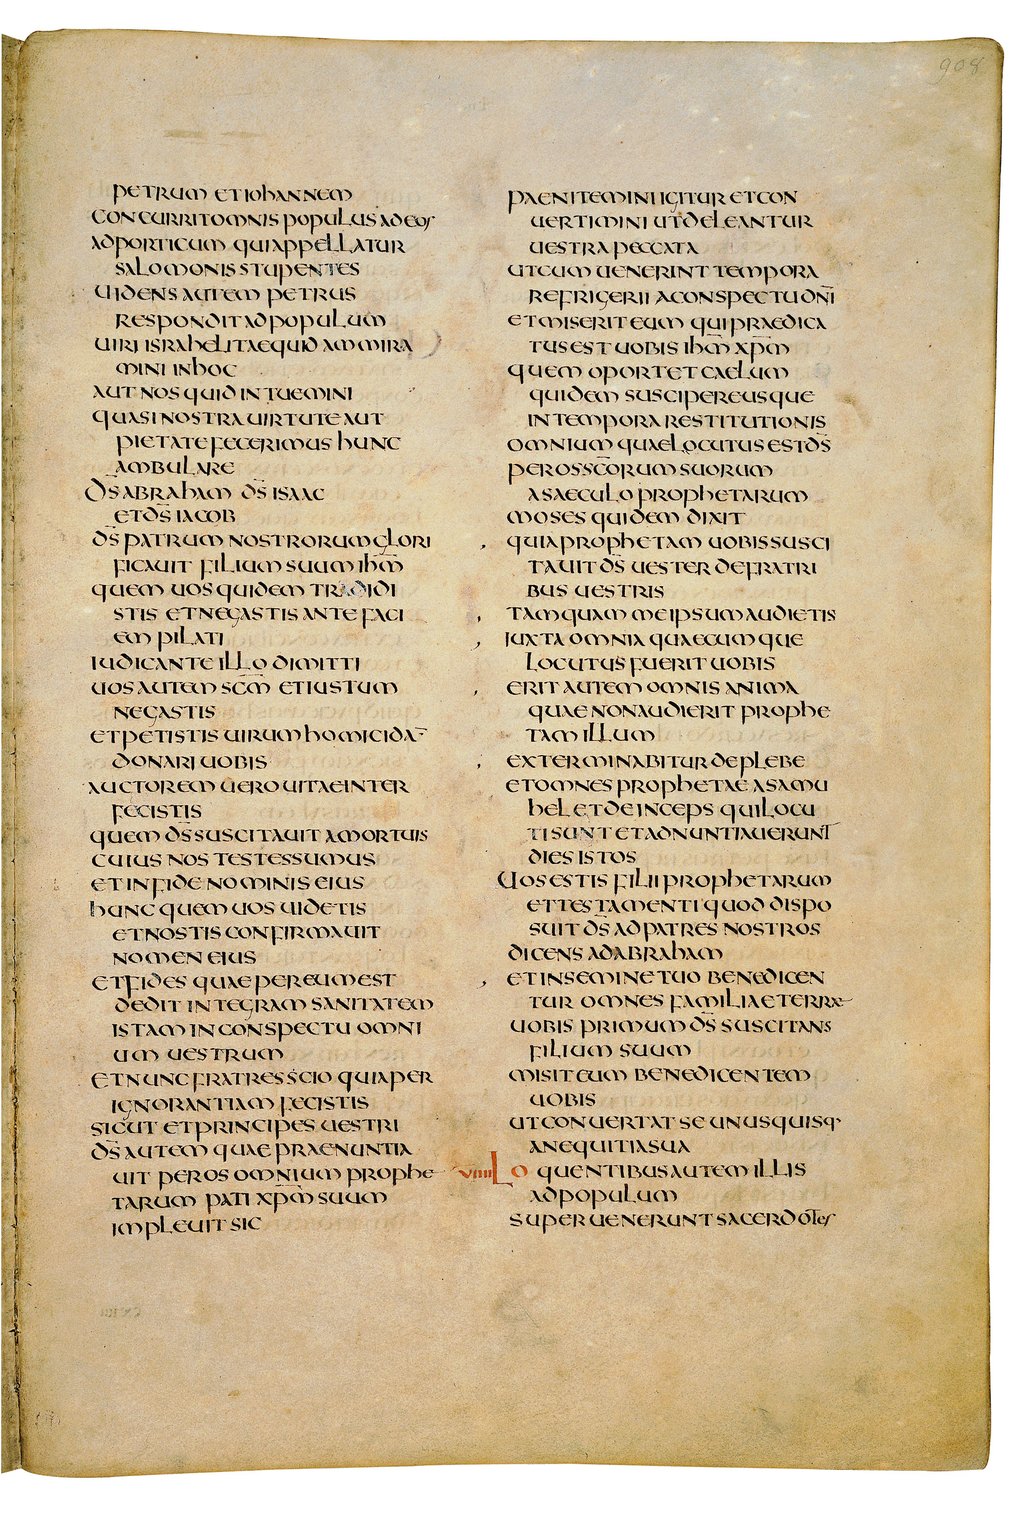 908
PETRUM ET IOHANNEM
CONCURRIT OMNIS POPULUS AD EOS
AD PORTICUM QUI APPELLATUR
SALOMONIS STUPENTES
UIDENS AUTEM PETRUS
RESPONDIT AD POPULUM
UIRI ISRAHELITAE QUID AMMIRA
MINI IN HOC
AUT NOS QUID INTUEMINI
QUASI NOSTRA UIRTUTE AUT
PIETATE FECERIMUS HUNC
AMBULARE
D̅S̅ ABRAHAM D̅S̅ ISAAC
ET D̅S̅ IACOB
D̅S̅ PATRUM NOSTRORUM GLORI
FICAUIT FILIUM SUUM IH̅M̅
QUEM UOS QUIDEM TRADIDI
STIS ET NEGASTIS ANTE FACI
EM PILATI
IUDICANTE ILLO DIMITTI
UOS AUTEM SC̅M̅ ET IUSTUM
NEGASTIS
ET PETISTIS UIRUM HOMICIDA̅
DONARI UOBIS
AUCTOREM UERO UITAE INTER
FECISTIS
QUEM D̅S̅ SUSCITAUIT A MORTUIS
CUIUS NOS TESTES SUMUS
ET IN FIDE NOMINIS EIUS
HUNC QUEM UOS UIDETIS
ET NOSTIS CONFIRMAUIT
NOMEN EIUS
ET FIDES QUAE PER EUM EST
DEDIT INTEGRAM SANITATEM
ISTAM IN CONSPECTU OMNI
UM UESTRUM
ET NUNC FRATRES SCIO QUIA PER
IGNORANTIAM FECISTIS
SICUT ET PRINCIPES UESTRI
D̅S̅ AUTEM QUAE PRAENUNTIA
UIT PER OS OMNIUM PROPHE
TARUM PATI XP̅M̅ SUUM
IMPLEUIT SIC
PAENITEMINI IGITUR ET CON
UERTIMINI UT DELEANTUR
UESTRA PECCATA
UT CUM UENERINT TEMPORA
REFRIGERII A CONSPECTU DN̅I̅
ET MISERIT EUM QUI PRAEDICA
TUS EST UOBIS IH̅M̅ XP̅M̅
QUEM OPORTET CAELUM
QUIDEM SUSCIPERE USQUE
IN TEMPORA RESTITUTIONIS
OMNIUM QUAE LOCUTUS EST D̅S̅
PER OS SC̅ORUM SUORUM
A SAECULO PROPHETARUM
MOSES QUIDEM DIXIT
, QUIA PROPHETAM UOBIS SUSCI
TAUIT D̅S̅ UESTER DE FRATRI
BUS UESTRIS
, TAMQUAM ME IPSUM AUDIETIS
, IUXTA OMNIA QUAECUMQUE
LOCUTUS FUERIT UOBIS
, ERIT AUTEM OMNIS ANIMA
QUAE NON AUDIERIT PROPHE
TAM ILLUM
, EXTERMINABITUR DE PLEBE
ET OMNES PROPHETAE A SAMU
HEL ET DEINCEPS QUI LOCU
TI SUNT ET ADNUNTIAUERUNT
DIES ISTOS
UOS ESTIS FILII PROPHETARUM
ET TESTAMENTI QUOD DISPO
SUIT D̅S̅ AD PATRES NOSTROS
DICENS AD ABRAHAM
, ET IN SEMINE TUO BENEDICEN
TUR OMNES FAMILIAE TERRAE
UOBIS PRIMUM D̅S̅ SUSCITANS
FILIUM SUUM
MISIT EUM BENEDICENTEM
UOBIS
UT CONUERTAT SE UNUSQUISQ·
A NEQUITIA SUA
VIIII LOQUENTIBUS AUTEM ILLIS
AD POPULUM
SUPERUENERUNT SACERDOTES